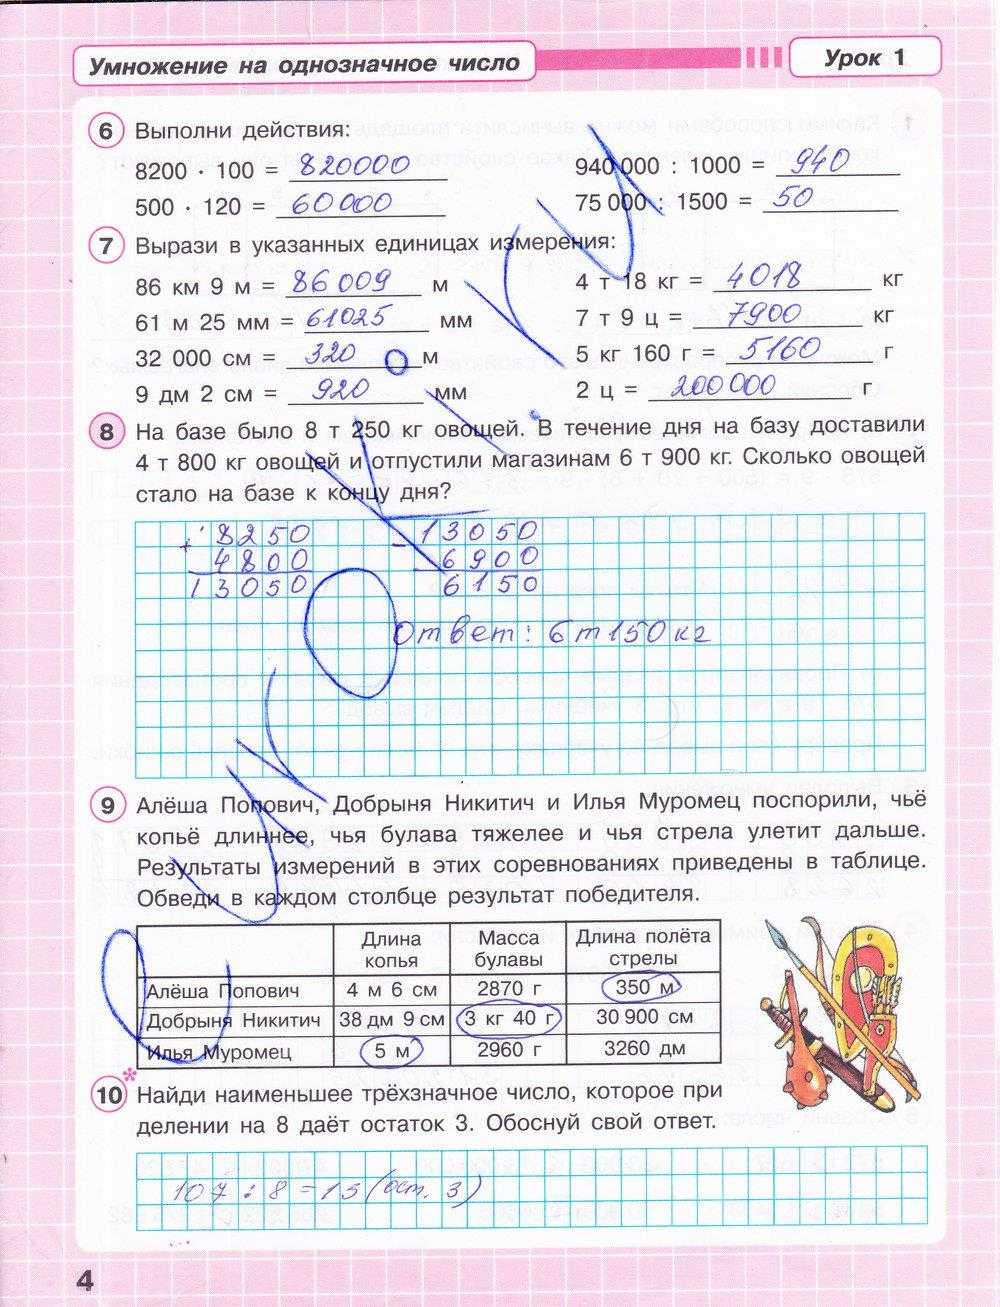 Умножение на однозначное число
Урок 1
6 Выполни действия:
8200 · 100 = 820000
940 000 : 1000 = 940
500 · 120 = 60000
75 000 : 1500 = 50
7 Вырази в указанных единицах измерения:
86 км 9 м = 86009 м
4 т 18 кг = 4018 кг
61 м 25 мм = 61025 мм
7 т 9 ц = 7900 кг
32 000 см = 320 м
5 кг 160 г = 5160 г
9 дм 2 см = 920 мм
2 ц = 200000 г
8 На базе было 8 т 250 кг овощей. В течение дня на базу доставили
4 т 800 кг овощей и отпустили магазинам 6 т 900 кг. Сколько овощей
стало на базе к концу дня?
8250 13050
+ 4800 - 6900
13050 6150
Ответ: 6 т 150 кг
9 Алёша Попович, Добрыня Никитич и Илья Муромец поспорили, чьё
копьё длиннее, чья булава тяжелее и чья стрела улетит дальше.
Результаты измерений в этих соревнованиях приведены в таблице.
Обведи в каждом столбце результат победителя.
Длина копья Масса булавы Длина полёта стрелы
Алёша Попович 4 м 6 см 2870 г 350 м
Добрыня Никитич 38 дм 9 см 3 кг 40 г 30 900 см
Илья Муромец 5 м 2960 г 3260 дм
10* Найди наименьшее трёхзначное число, которое при
делении на 8 даёт остаток 3. Обоснуй свой ответ.
107 : 8 = 13 (ост. 3)
4